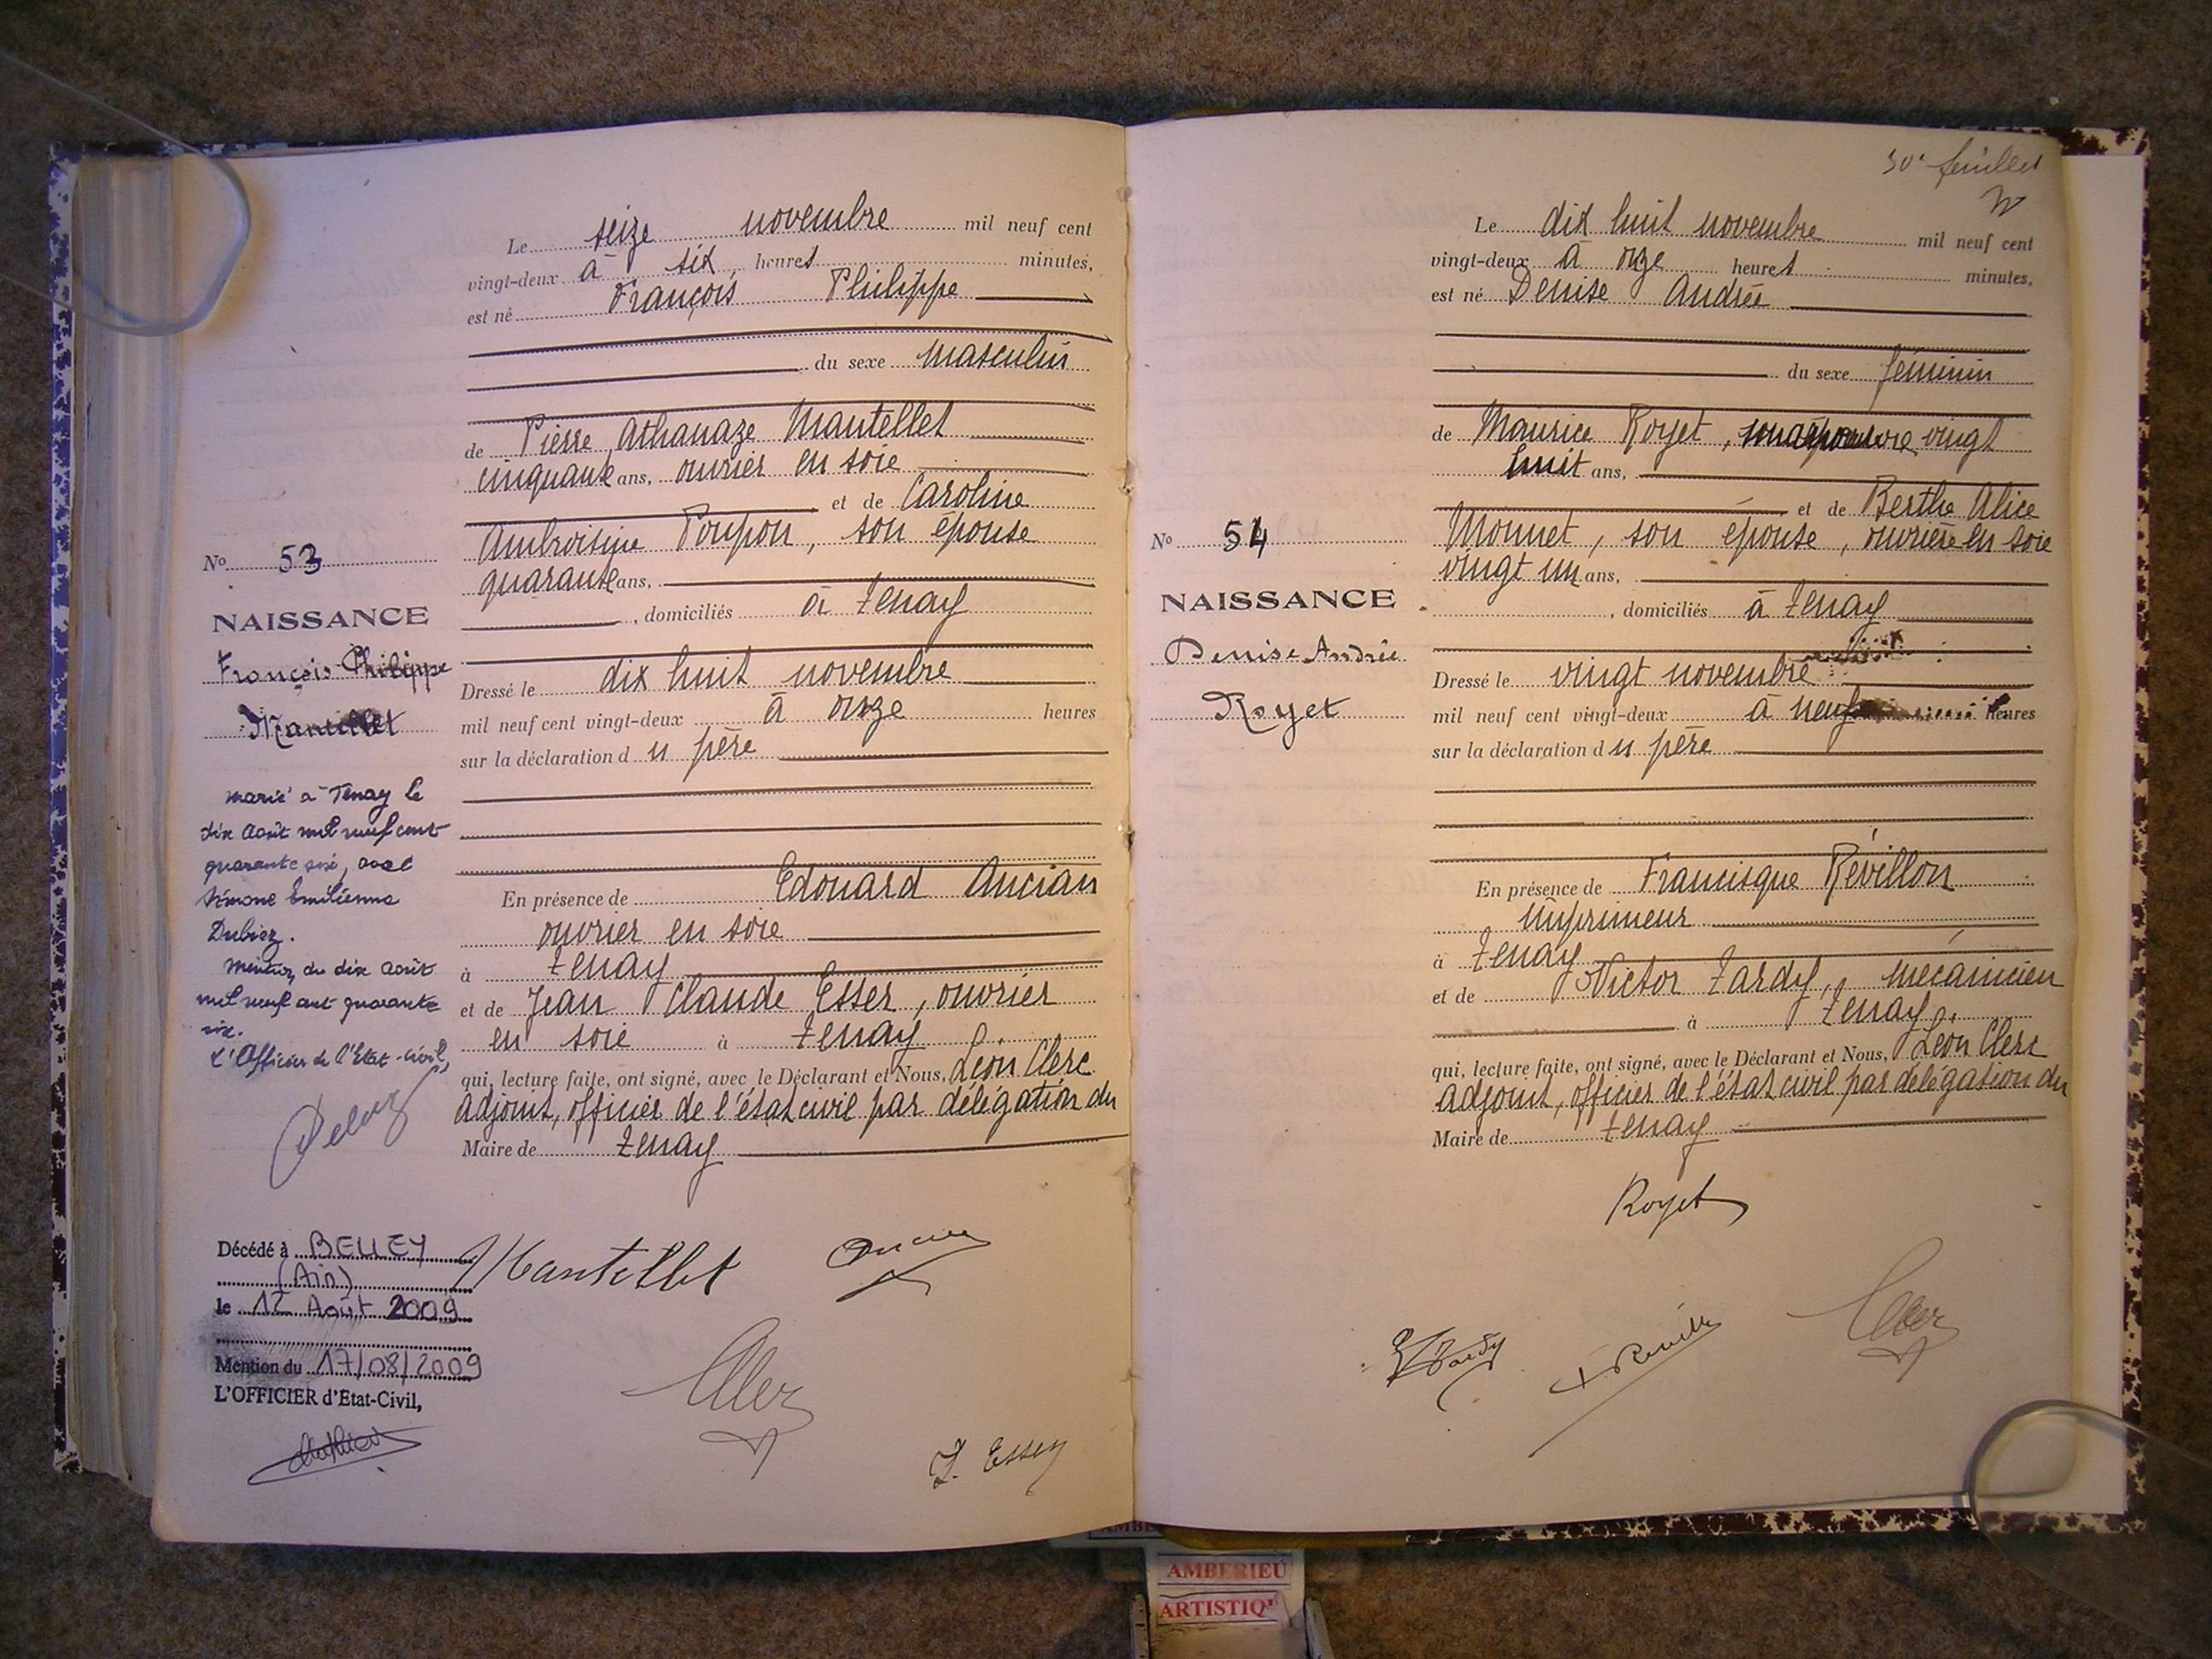 Le seize novembre mil neuf cent
vingt-deux à six heures minutes,
est né François Philippe
du sexe masculin
de Pierre Athanaze Mantellet
cinquante ans, ouvrier en soie
et de Caroline
Ambroisine Poupon, son épouse
quarante ans,
, domiciliés à Tenay
Dressé le dix huit novembre
mil neuf cent vingt-deux à onze heures
sur la déclaration du père
En présence de Edouard Ancian
ouvrier en soie
à Tenay
et de Jean Claude Esser, ouvrier
en soie à Tenay
qui, lecture faite, ont signé, avec le Déclarant et Nous, Léon Clerc
adjoint, officier de l'état civil par délégation du
Maire de Tenay
Mantellet
J. Esser
No 53
NAISSANCE
François Philippe
Mantellet
marié à Tenay le
dix Août mil neuf cent
quarante six, avec
Simone Emilienne
Dubiez.
Mention du dix août
mil neuf cent quarante
six.
L'Officier de l'Etat-civil,
Décédé à BELLEY
(Ain)
le 12 Août 2009
Mention du 17/08/2009
L'OFFICIER d'Etat-Civil,
30e feuillet
Le dix huit novembre mil neuf cent
vingt-deux à onze heures minutes,
est né Denise Andrée
du sexe féminin
de Maurice Royet, vingt
huit ans,
et de Berthe Alice
Monnet, son épouse, ouvrière en soie
vingt un ans,
, domiciliés à Tenay
Dressé le vingt novembre
mil neuf cent vingt-deux à neuf heures
sur la déclaration du père
En présence de Francisque Révillon
imprimeur
à Tenay
et de Victor Tardy, mécanicien
à Tenay.
qui, lecture faite, ont signé, avec le Déclarant et Nous, Léon Clerc
adjoint, officier de l'état civil par délégation du
Maire de Tenay
Royet
No 54
NAISSANCE
Denise Andrée
Royet
AMBERIEU
ARTISTIQ